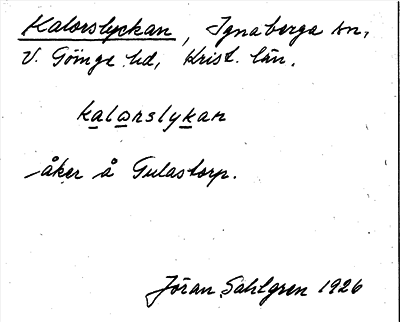 Kalorslyckan, Ignaberga sn,
V. Göinge hd, Krist. län.
kalorslykan
åker å Gulastorp.
Jöran Sahlgren 1926